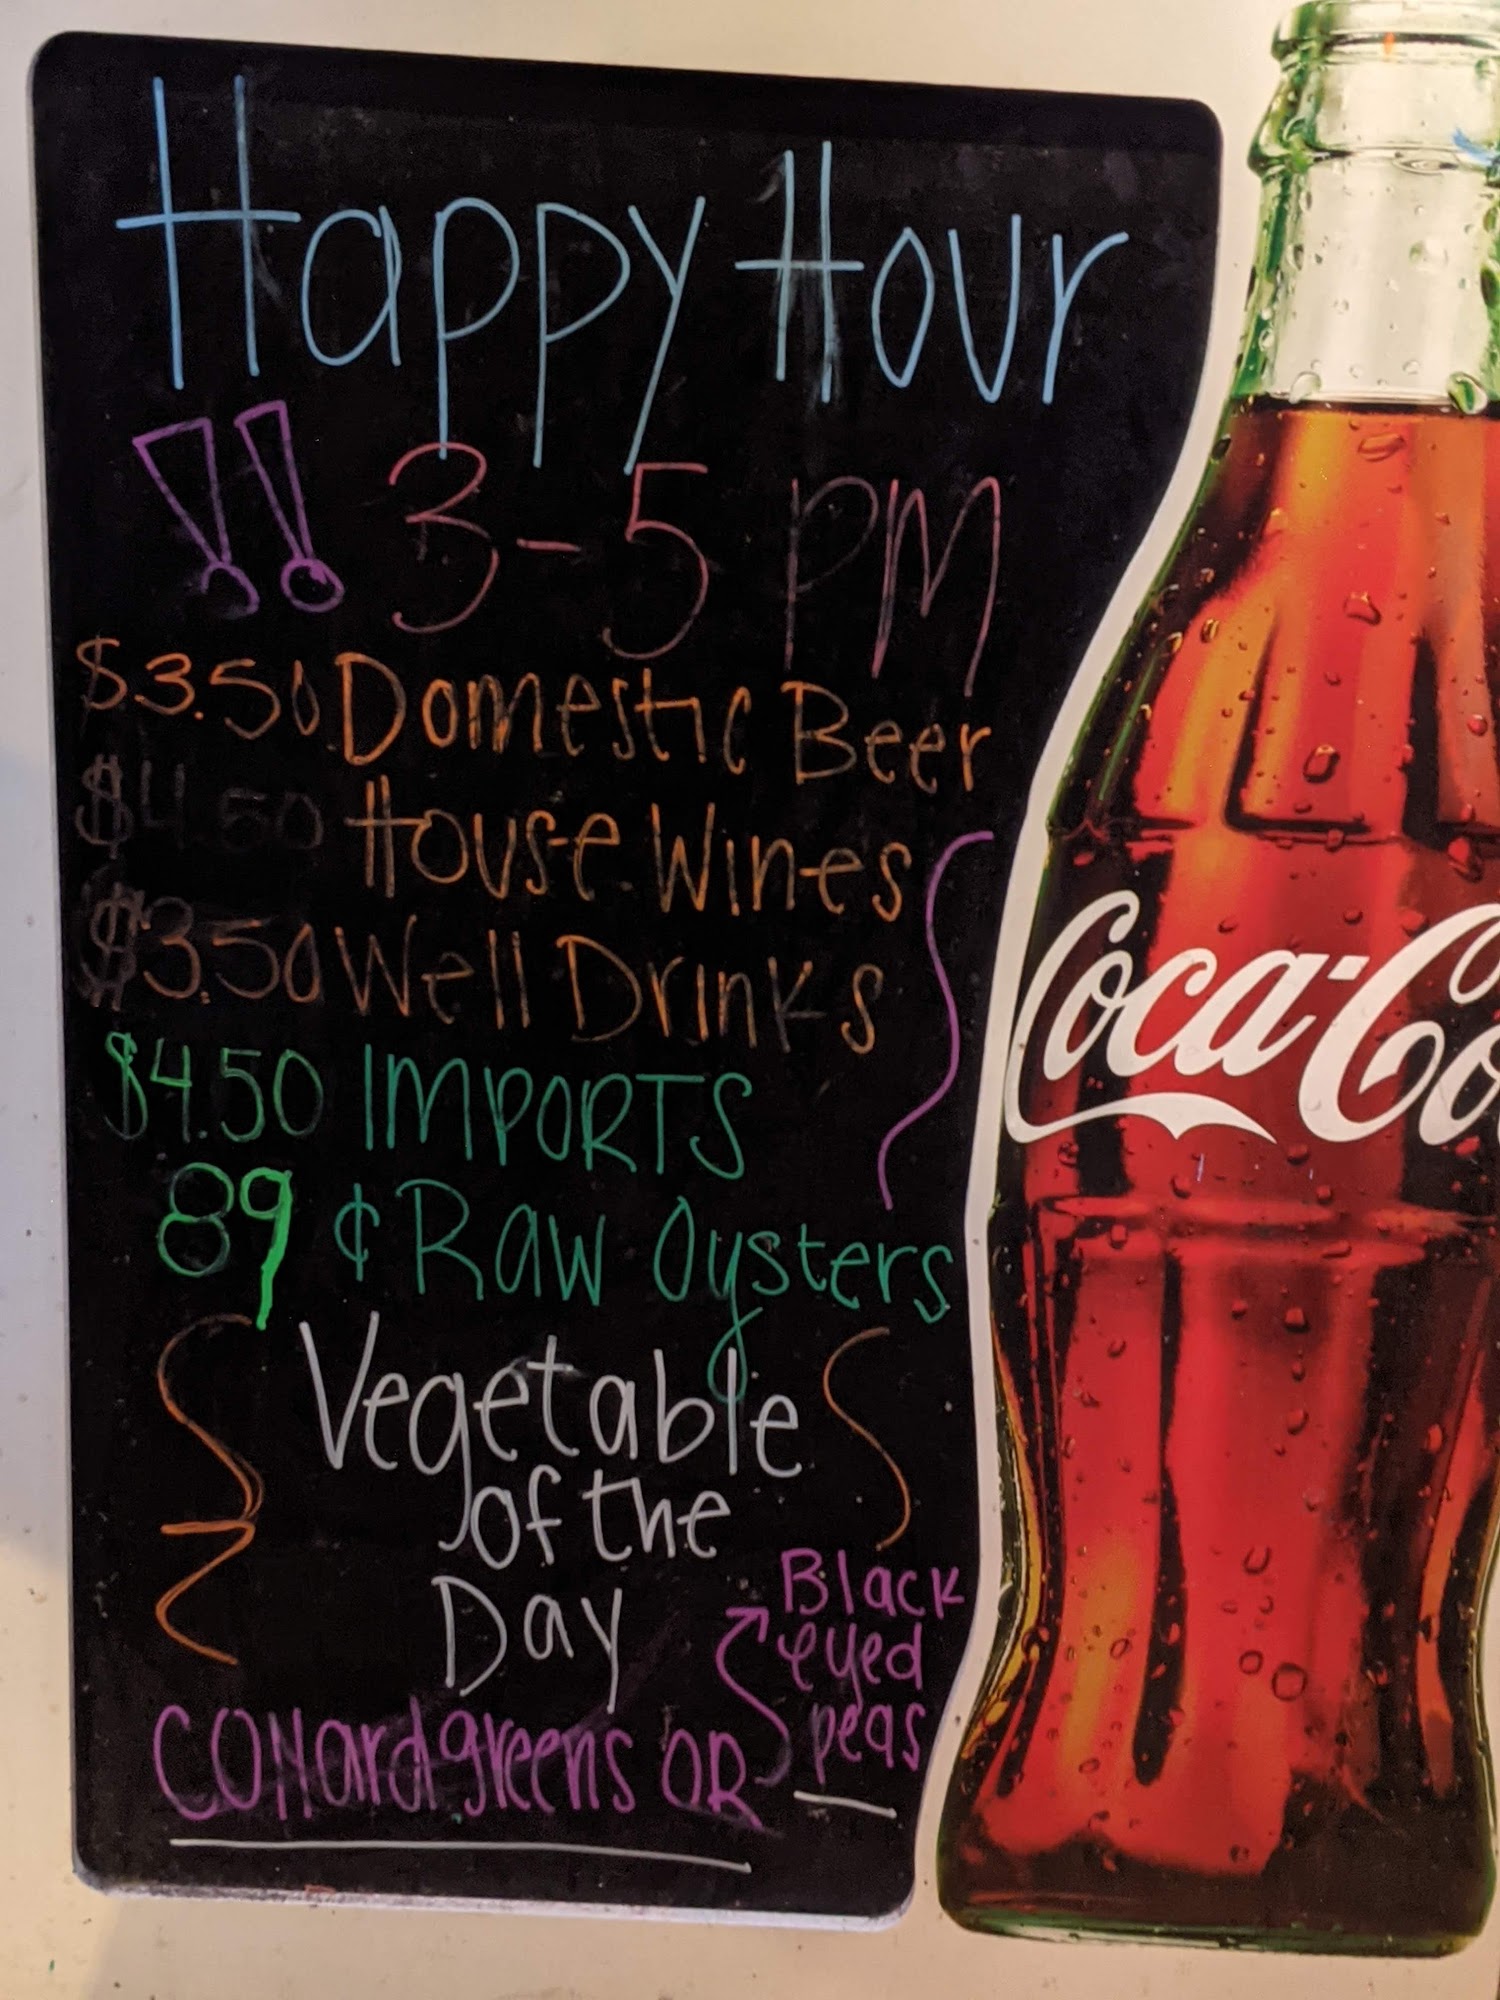 Happy Hour
!! 3-5 PM
$3.50 Domestic Beer
$4.50 House Wines
$3.50 Well Drinks
$4.50 IMPORTS
89 ¢ Raw Oysters
Vegetable
of the
Day
Black
eyed
peas
COllard greens OR
Coca-Co